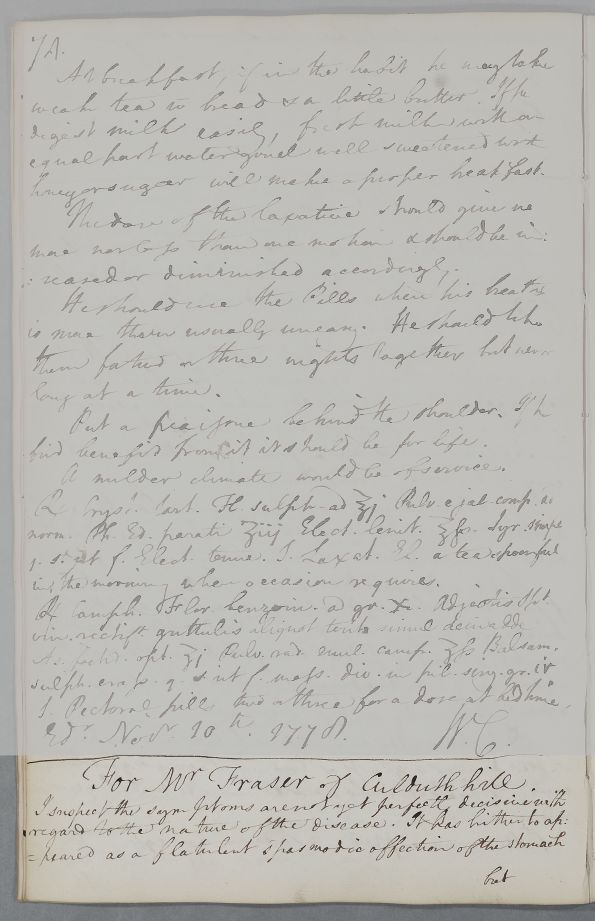 74.
At breakfast, if in the habit he may take
weak tea w bread & a little butter. If he
digest milk easily, fresh milk with an
equal part water gruel well sweetened with
honey or sugar will make a proper breakfast.
The dose of the laxative should give no
more nor less than one motion & should be in:
:creased or diminished accordingly.
He should use the Pills when his breath
is more than usually uneasy. He should take
them for two or three nights together but never
long at a time.
Put a pea issue behind the shoulder. If he
find benefit from it it should be for life.
A milder climate would be of service.
℞ Cryst. tart. Fl. sulph. ad ʒj Pulv. e jal. comp. ad
norm. Ph. Ed. parati ʒiij Elect. lenit. ℥fs. Syr. simpl
q. s. ut f. Elect. tenue. S. Laxat. El. a tea spoonful
in the morning when occasion requires.
℞ Camph. Flor. benzoin. a gr. x. Adjectis Spt.
vin. rectift. guttulis aliquot tent simul deinadde
As. foetid. opt. ʒj Pulv. rad. enul. camp. ʒfs Balsam.
sulph. crass. q. s ut f. mass. div. in pil. sing. gr. iv
S. Pectoral pills two or three for a dose at bedtime.
Edr. Novr. 10th. 1778. W. C.
For Mr Fraser of Culduthhill.
I suspect the symptoms are not yet perfectly decisive with
regard to the nature of the disease. It has hitherto ap:
=peared as a flatulent spasmodic affection of the stomach
but